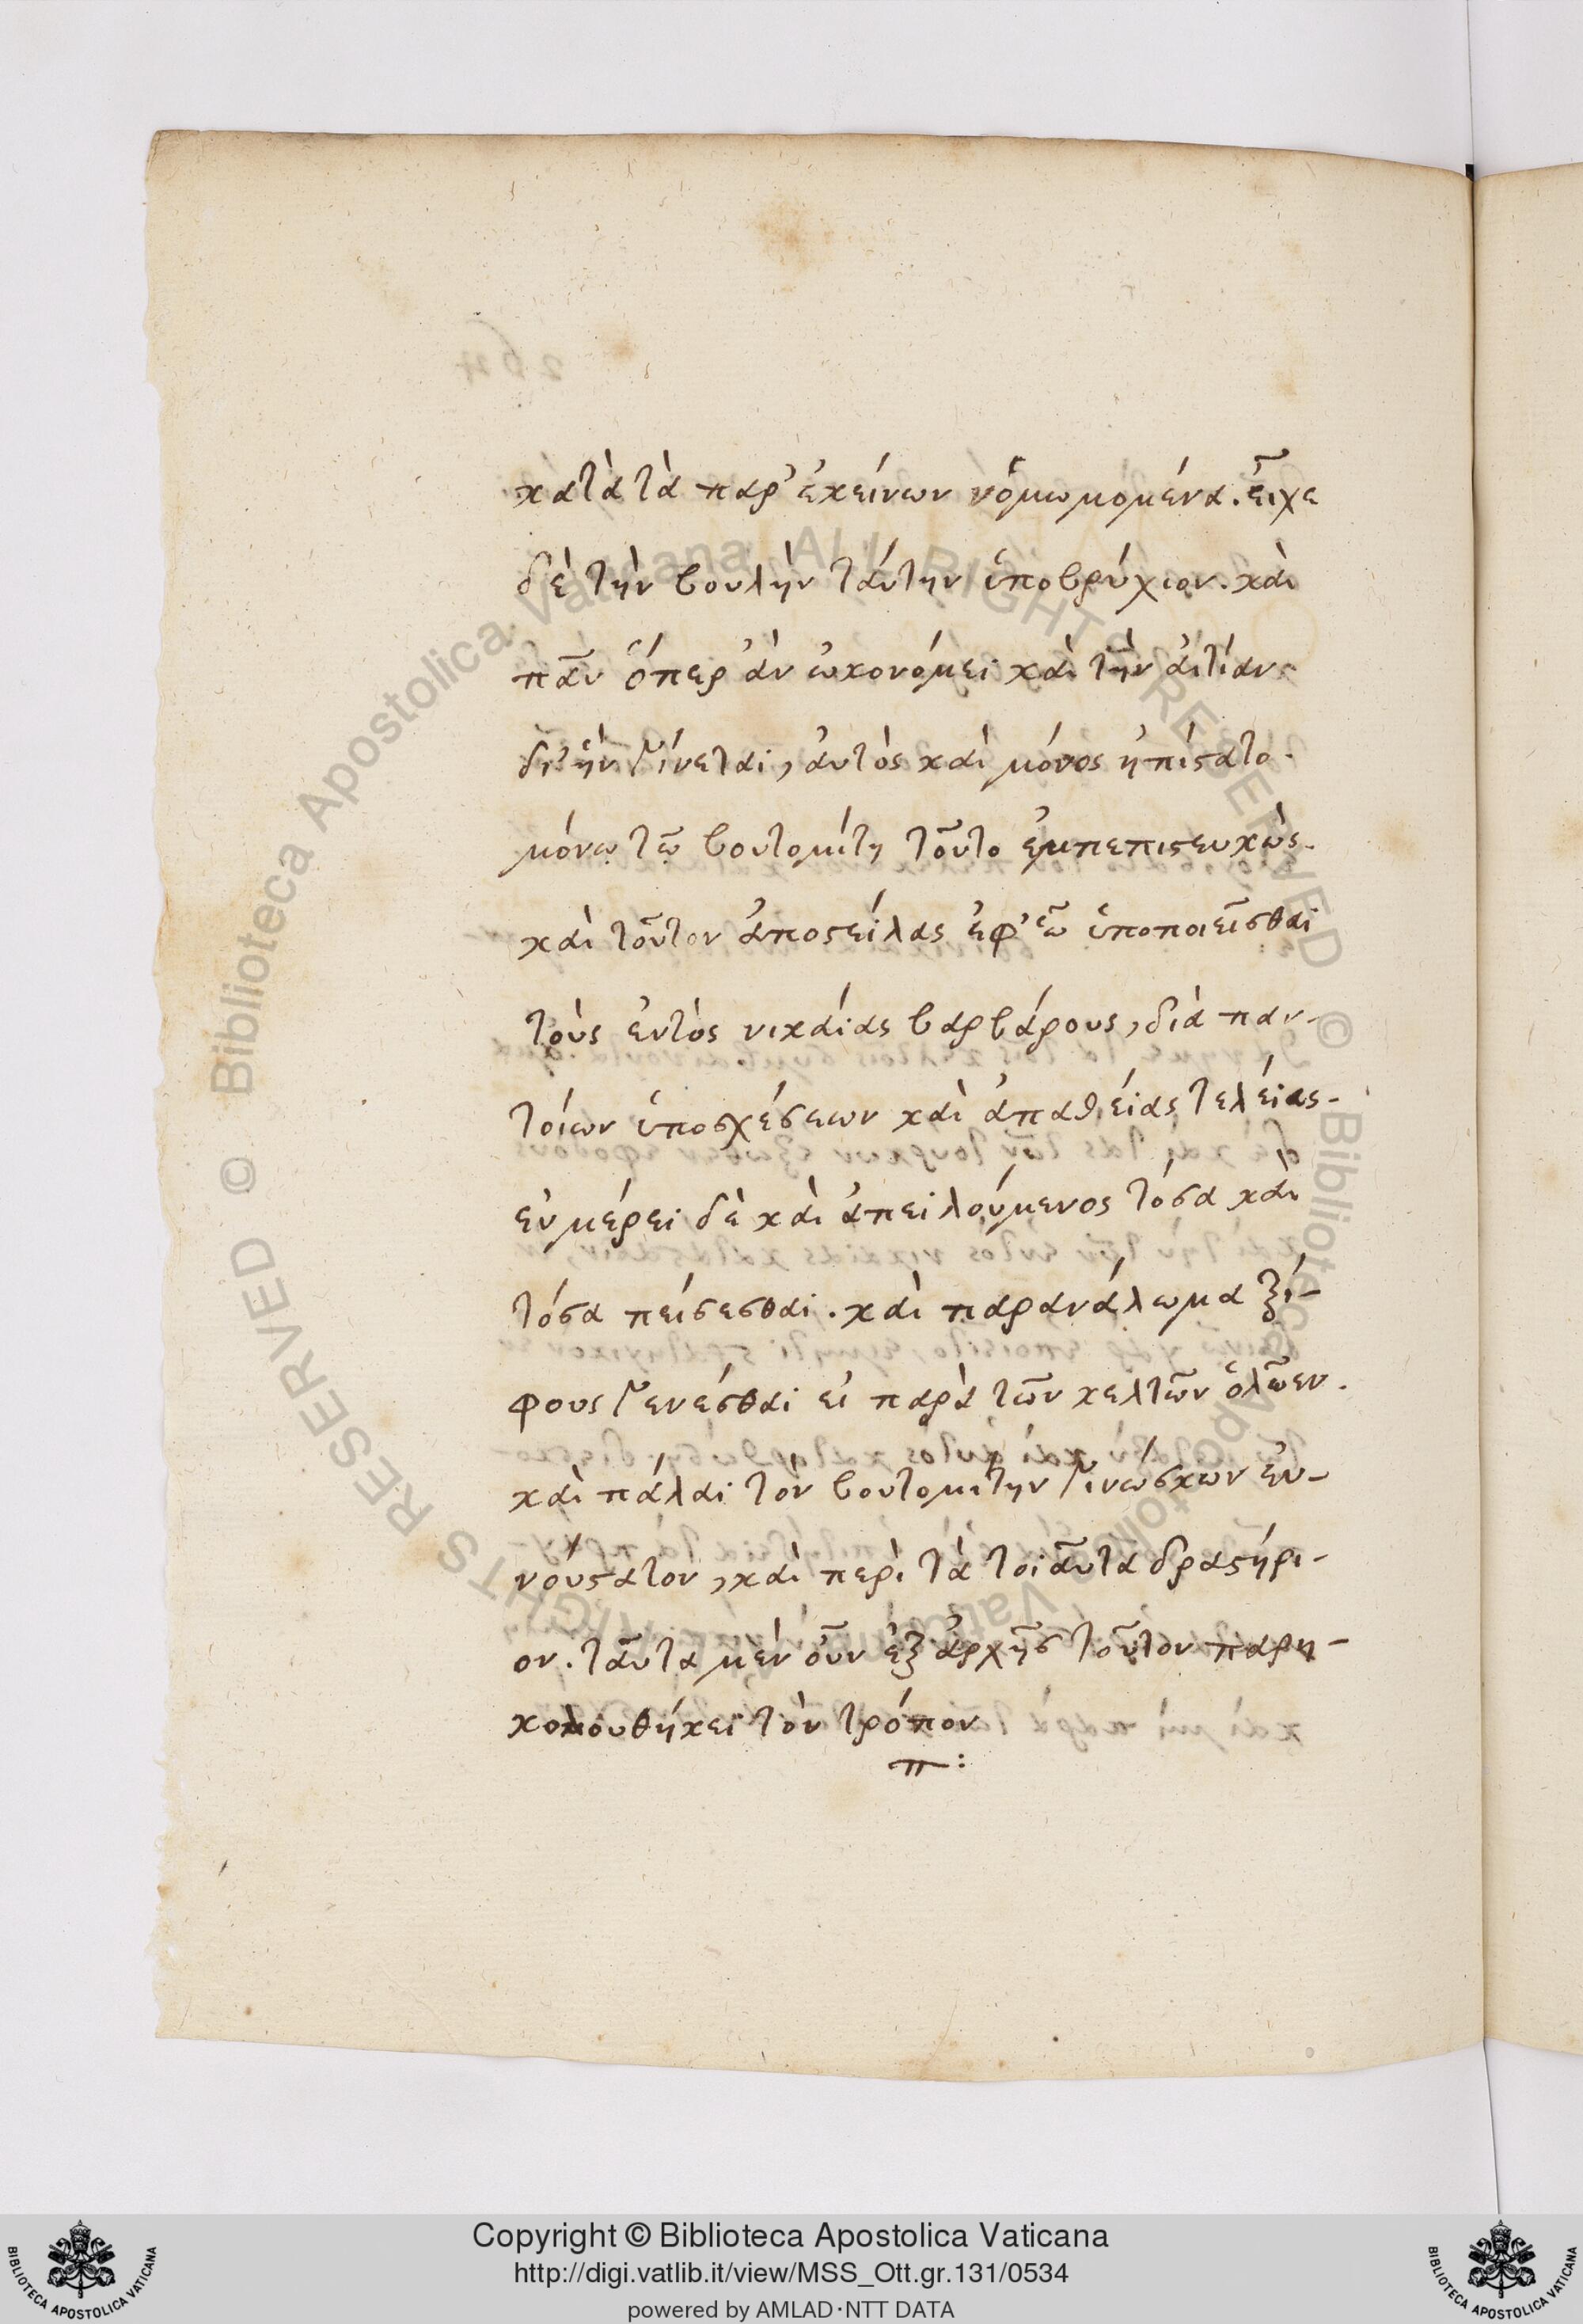 κατὰ τὰ παρ' ἐκείνων νὀμωμομένα. εἶχε
δὲ τὴν βουλὴν ταύτην ὑποβρύχιον. καὶ
πᾶν ὅπερ ἂν ὠκονόμει καὶ τὴν ἀιτίαν
δι' ἣν γίνεται, ἀυτὸς καὶ μόνος ἠπίστατο.
μόνῳ τῷ βουτομίτῃ τοῦτο ἐμπεπιστευκὼς.
καὶ τοῦτον ἀποστείλας ἐφ' ᾧ ὑποποιεῖσθαι
τοὺς ἐντὸς νικαίας βαρβάρους, διὰ παν-
τοίων ὑποσχέσεων καὶ ἀπαθείας τελείας-
ἐν μέρει δὲ καὶ ἀπειλούμενος τόσα καὶ
τόσα πείσεσθαι. καὶ παρανάλωμα ξί-
φους γενέσθαι εἰ παρὰ τῶν κελτῶν ἁλῶεν.
καὶ πάλαι τὸν βουτομίτην γινώσκων ἐυ-
νούστατον, καὶ περὶ τὰ τοιαῦτα δραστήρι-
ον. ταῦτα μὲν οὖν ἐξ ἀρχῆς τοῦτον παρη-
κολουθήκει τὸν τρόπον
Copyright © Biblioteca Apostolica Vaticana
http://digi.vatlib.it/view/MSS_Ott.gr.131/0534
powered by AMLAD·NTT DATA
BIBLIOTECA APOSTOLICA VATICANA
BIBLIOTECA APOSTOLICA VATICANA
© Biblioteca Apostolica Vaticana ALL RIGHTS RESERVED
© Biblioteca Apostolica Vaticana ALL RIGHTS RESERVED